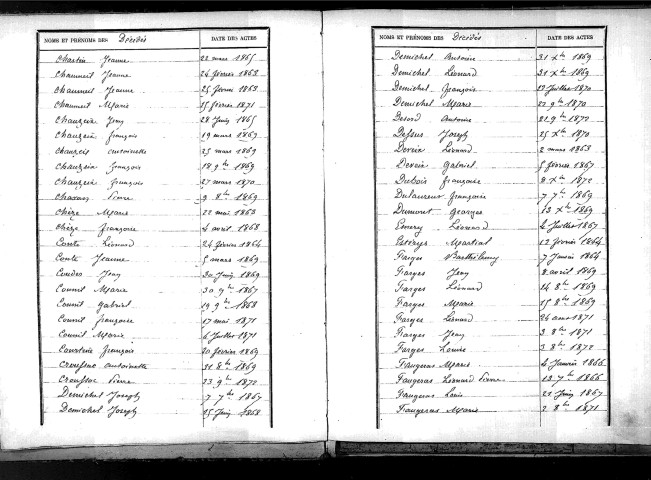 NOMS ET PRÉNOMS DES Décédés DATE DES ACTES
Chastin Jeanne 22 mars 1865
Chaumeil Jeanne 24 février 1863
Chaumeil Jeanne 25 février 1863
Chaumeil Marie 25 février 1871
Chauzeix Jeny 28 Juin 1865
Chauzeix françois 19 mars 1867
Chauzeix antoinette 25 mars 1869
Chauzeix françois 18 9bre 1869
Chauzeix françois 27 mars 1870
Chavans Pierre 9 8bre 1869
Chèze Marie 22 mai 1863
Chèze françoise 4 avril 1868
Conte Léonard 24 février 1864
Conte Jeanne 5 mars 1869
Coudes Jeny 30 Juin 1869
Counil Marie 30 9bre 1867
Counil Gabriel 19 9bre 1868
Counil françoise 17 mai 1871
Counil Marie 6 Juillet 1871
françois 20 février 1869
Creuflac antoinette 31 8bre 1869
Creuflac Pierre 23 9bre 1872
Demichel Joseph 7 7bre 1867
Demichel Joseph 25 Juin 1868
NOMS ET PRÉNOMS DES Décédés DATE DES ACTES
Demichel Antoine 31 Xbre 1869
Demichel Léonard 31 Xbre 1869
Demichel françois 17 Juillet 1870
Demichel Marie 22 9bre 1870
Desord Antoine 21 9bre 1870
Dessus Joseph 25 Xbre 1870
Deveix Léonard 2 mars 1863
Deveix Gabriel 5 février 1867
Dubois françoise 8 Xbre 1872
Dulaureux françoise 7 7bre 1869
Dumont Georges 13 Xbre 1869
Emery Léonard 4 Juillet 1867
Martial 12 février 1864
Farges Barthélemy 7 Janvier 1864
Farges Jeny 8 avril 1869
Farges Léonard 14 8bre 1869
Farges Marie 15 8bre 1869
Farges Léonard 24 avril 1871
Farges Jeny 3 8bre 1871
Farges Louise 3 8bre 1872
Faugeras Marie 4 Janvier 1866
Faugeras Léonard Pierre 13 7bre 1866
Faugeras Louis 21 Juin 1867
Faugeras Marie 2 8bre 1871